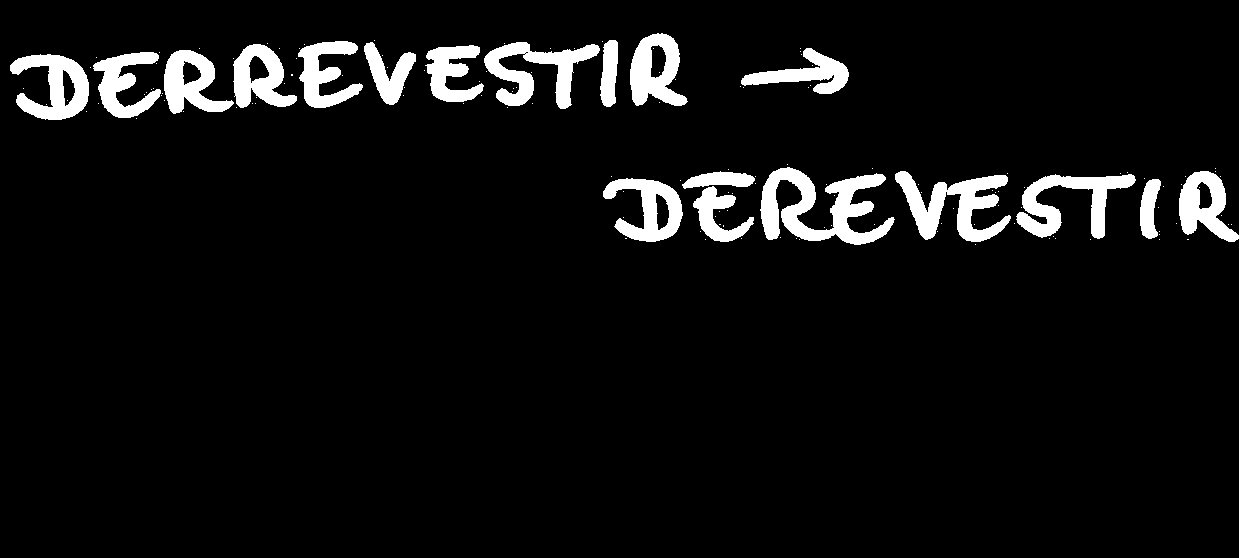 DERREVESTIR →
DEREVESTIR